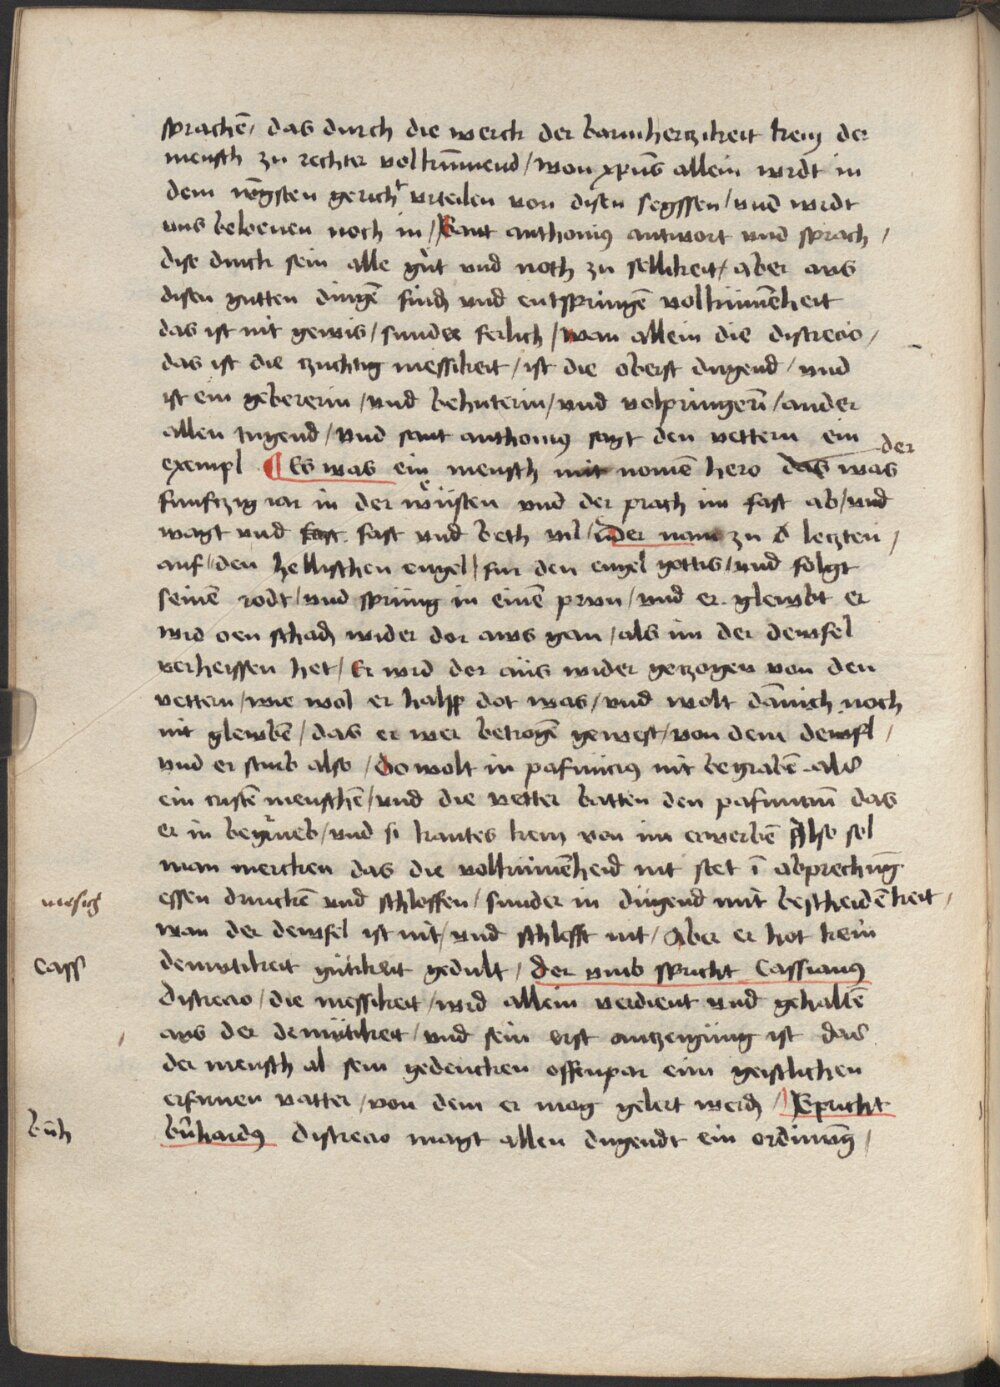 sprachē / das durch die werck der barmhertzikeit kem der
mensch zu rechter volkūmend / wan xpūs allein wirdt in
dem iūgsten gericht vrteilen von disen segssen / vnd wirdt
vns belonen noch in / Sant anthonius antwort vnd sprach /
dise dinck sein alle gut vnd noth zu sellikeit / aber aus
disen gutten dingē
das ist nit gewis / sunder ferlich / wan allein die discrecio /
das ist die zuchtig messikeit / ist die oberst dugend / vnd
ist ein gebererin / vnd behuterin / vnd volpringerī / ander
allen tugend / vnd sant anthonius sagt den vettern ein
exempl ¶ Es was ein mensch mit nomē hero das der was
funftzig iar in der wüsten vnd der prach im fast ab / vnd
wagt vnd fast vnd beth vil / der nam zu d letzten /
auf / den hellischen engel / fur den engel gottis / vnd folgt
seinē rodt / vnd sprüng in einē prvn / vnd er glewbt er
wird oen schadē wider dor aws gan / als im der dewfel
verheissen het / Er wird dor aüs wider getzogen von den
vettern / wie wol er halp dot was / vnd wolt dānich noch
nit glewbē / das er wer betrogē gewest / von dem dewfl /
vnd er starb also / do wolt in pafuncius nit begrabē als
ein cristē menschē / vnd die vetter batten den pafuncium das
er in begrueb / vnd si kantes kem von im erwerbē Also sol
man mercken das die volkumēheid nit stet ī abprechūg
essen drinckē vnd schleffen / sunder in dügend mit bescheidēkeit /
wan der dewfel ist nit / vnd schlefft nit / Aber er hot kein
cass demutikeit gütikeit gedult / der vmb spricht Cassianus
discrecio / die messikeit / wird allein verdient vnd gehaltē
aus der demütikeit / vnd sein erst antzeigung ist das
der mensch al sein gedencken offenpar eim geistlichen
erfarnen vatter / von dem er mag gelert werdē / Spricht
bn̄h bn̄hardus discrecio magt allen dugendt ein ordinūg /